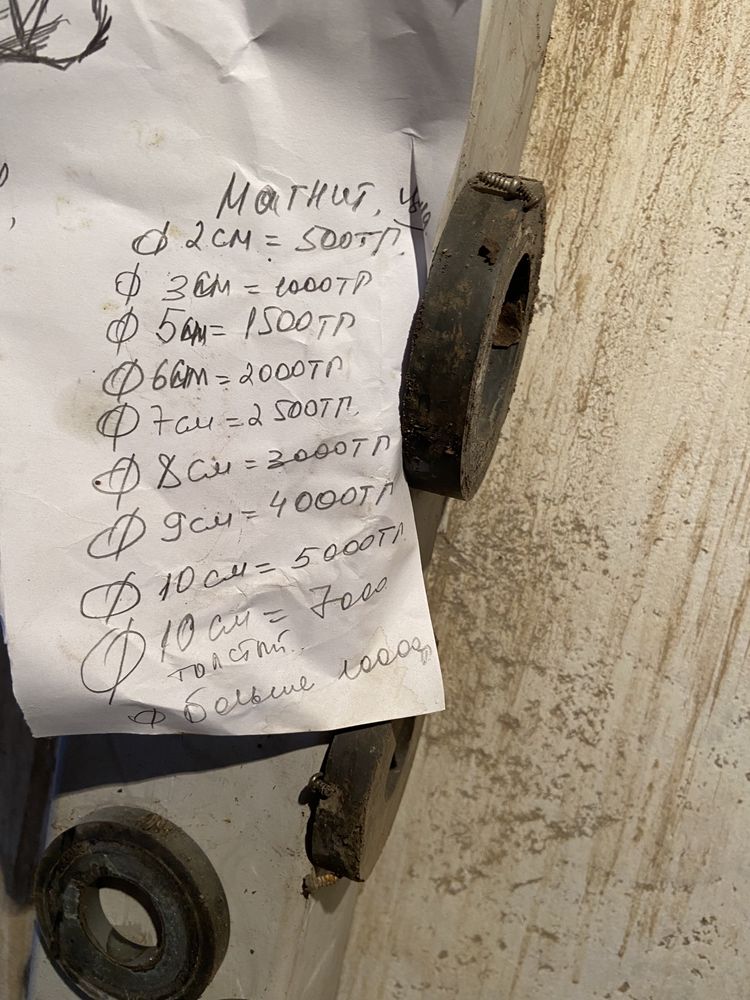 Магнит, цена
⌀ 2 см = 500тг.
⌀ 3 см = 1000тг
⌀ 5 см = 1500тг
⌀ 6 см = 2000тг
⌀ 7 см = 2500тг.
⌀ 8 см = 3000тг
⌀ 9 см = 4000тг
⌀ 10 см = 5000тг
⌀ 10 см = 7000
толстый.
⌀ больше 10000тг